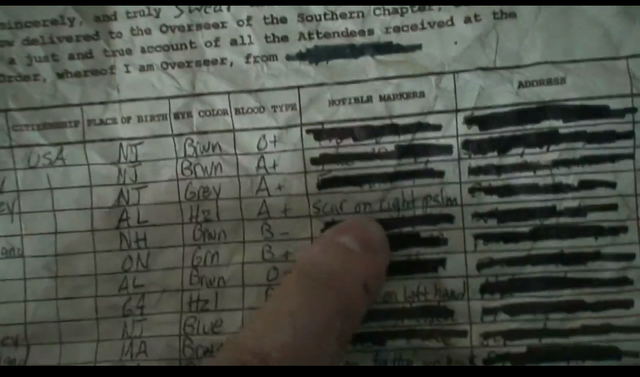 sincerely, and truly swear
delivered to the Overseer of the Southern Chapter,
a just and true account of all the Attendees received at the
Order, whereof I am Overseer, from
CITIZENSHIP PLACE OF BIRTH EYE COLOR BLOOD TYPE NOTIBLE MARKERS ADDRESS
USA NJ Brwn O+
NJ Brwn A+
NJ Grey A+
AL Hzl A+ Scar on right palm
NH Brwn B-
ON Grn B+
AL Brwn O-
GA Hzl on left hand
NJ Blue
MA